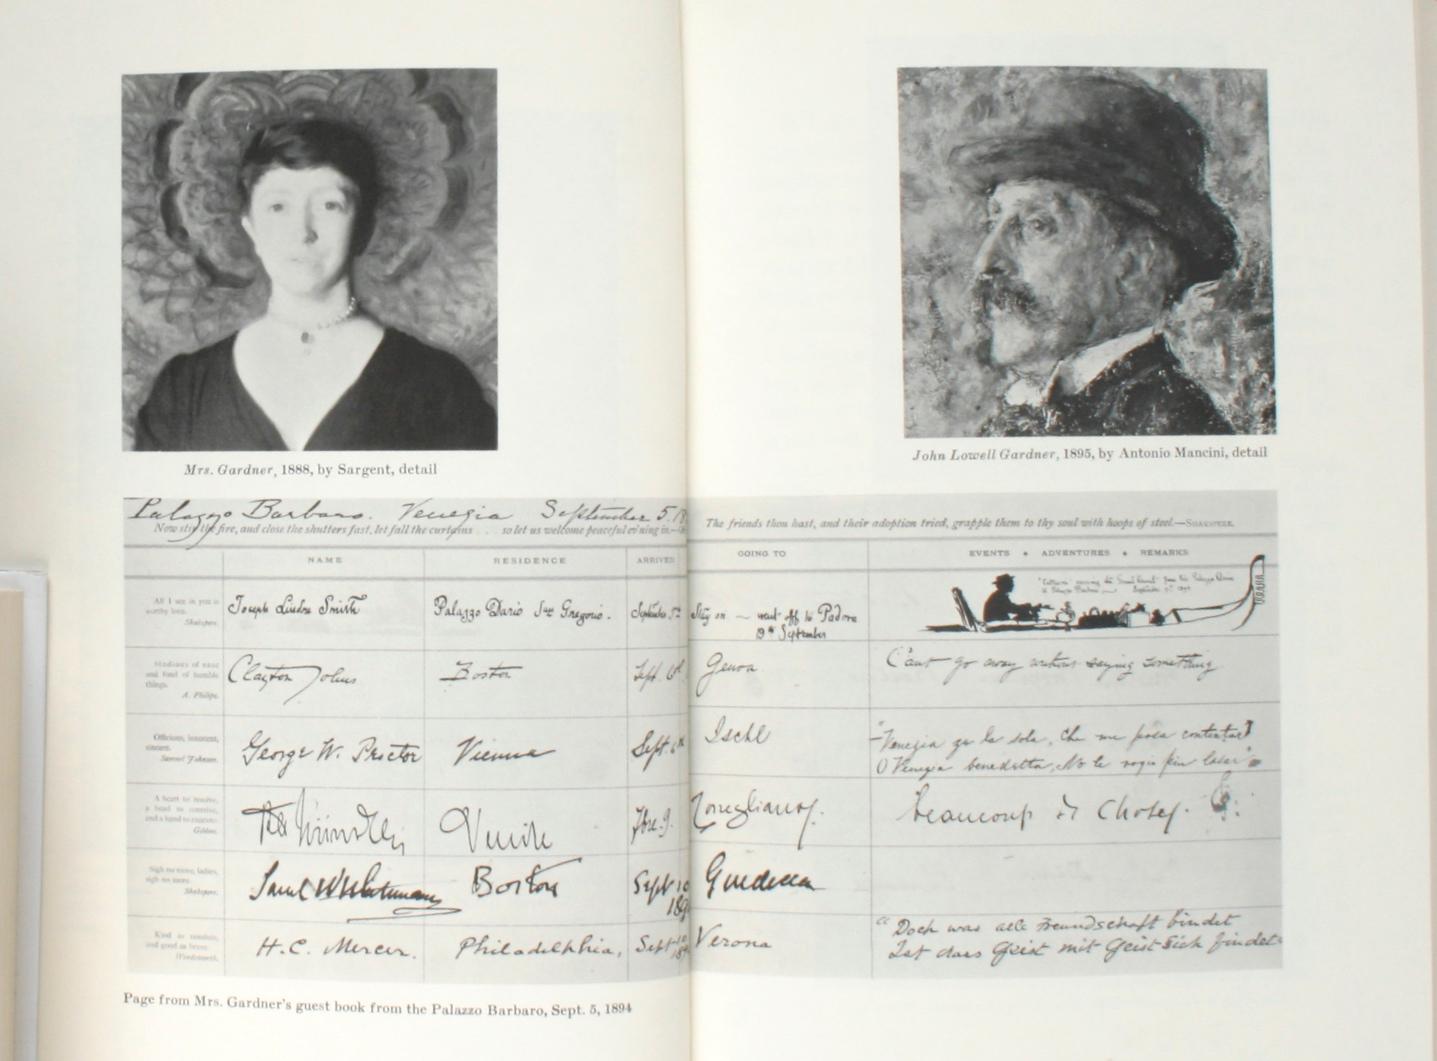 Mrs. Gardner, 1888, by Sargent, detail
John Lowell Gardner, 1895, by Antonio Mancini, detail
Palazzo Barbaro. Venezia September 5. 18
Now stir the fire, and close the shutters fast, let fall the curtains . . . so let us welcome peaceful evening in.—
The friends thou hast, and their adoption tried, grapple them to thy soul with hoops of steel.—SHAKSPERE.
NAME RESIDENCE ARRIVED GOING TO EVENTS • ADVENTURES • REMARKS
All I see in you is
worthy love.
Shakspere.
Joseph Lindon Smith Palazzo Dario San Gregorio. September 5th Stay on — went off to Padova
19th September
Studious of ease
and fond of humble
things.
A. Philips.
Clayton Johns Boston Sept. 6th Genoa Can't go away without saying something
Officious, innocent,
sincere.
Samuel Johnson.
George W. Proctor Vienna Sept. 6th Ischl
"Venezia
O Venezia benedetta, No te
A heart to resolve,
a head to contrive,
and a hand to execute.
Gibbon.
Venice 9. Beaucoup de choses.
Sigh no more, ladies,
sigh no more.
Shakspere.
Boston Sept 10
Giudecca
Kind as
and good as brave.
H.C. Mercer. Philadelphia, Sept 10 Verona
"Doch was alle Freundschaft bindet
Ist dass Geist mit Geist sich findet"
Page from Mrs. Gardner's guest book from the Palazzo Barbaro, Sept. 5, 1894